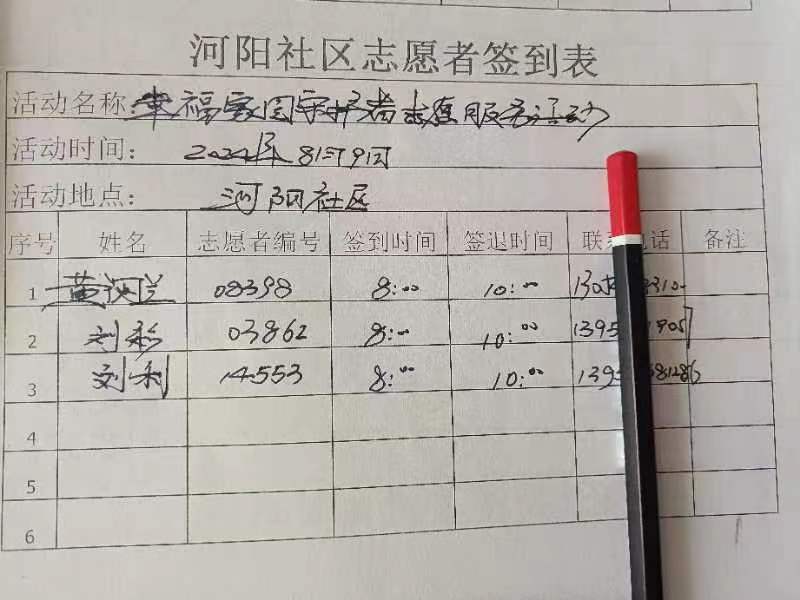 河阳社区志愿者签到表
活动名称: 幸福家园守护者志愿服务活动
活动时间: 2022年8月9日
活动地点: 河阳社区
序号 姓名 志愿者编号 签到时间 签退时间 联 话 备注
1 黄 兰 08398 8:00 10:00
2 刘彩 03862 8:00 10:00 1395
3 刘利 14553 8:00 10:00
4
5
6